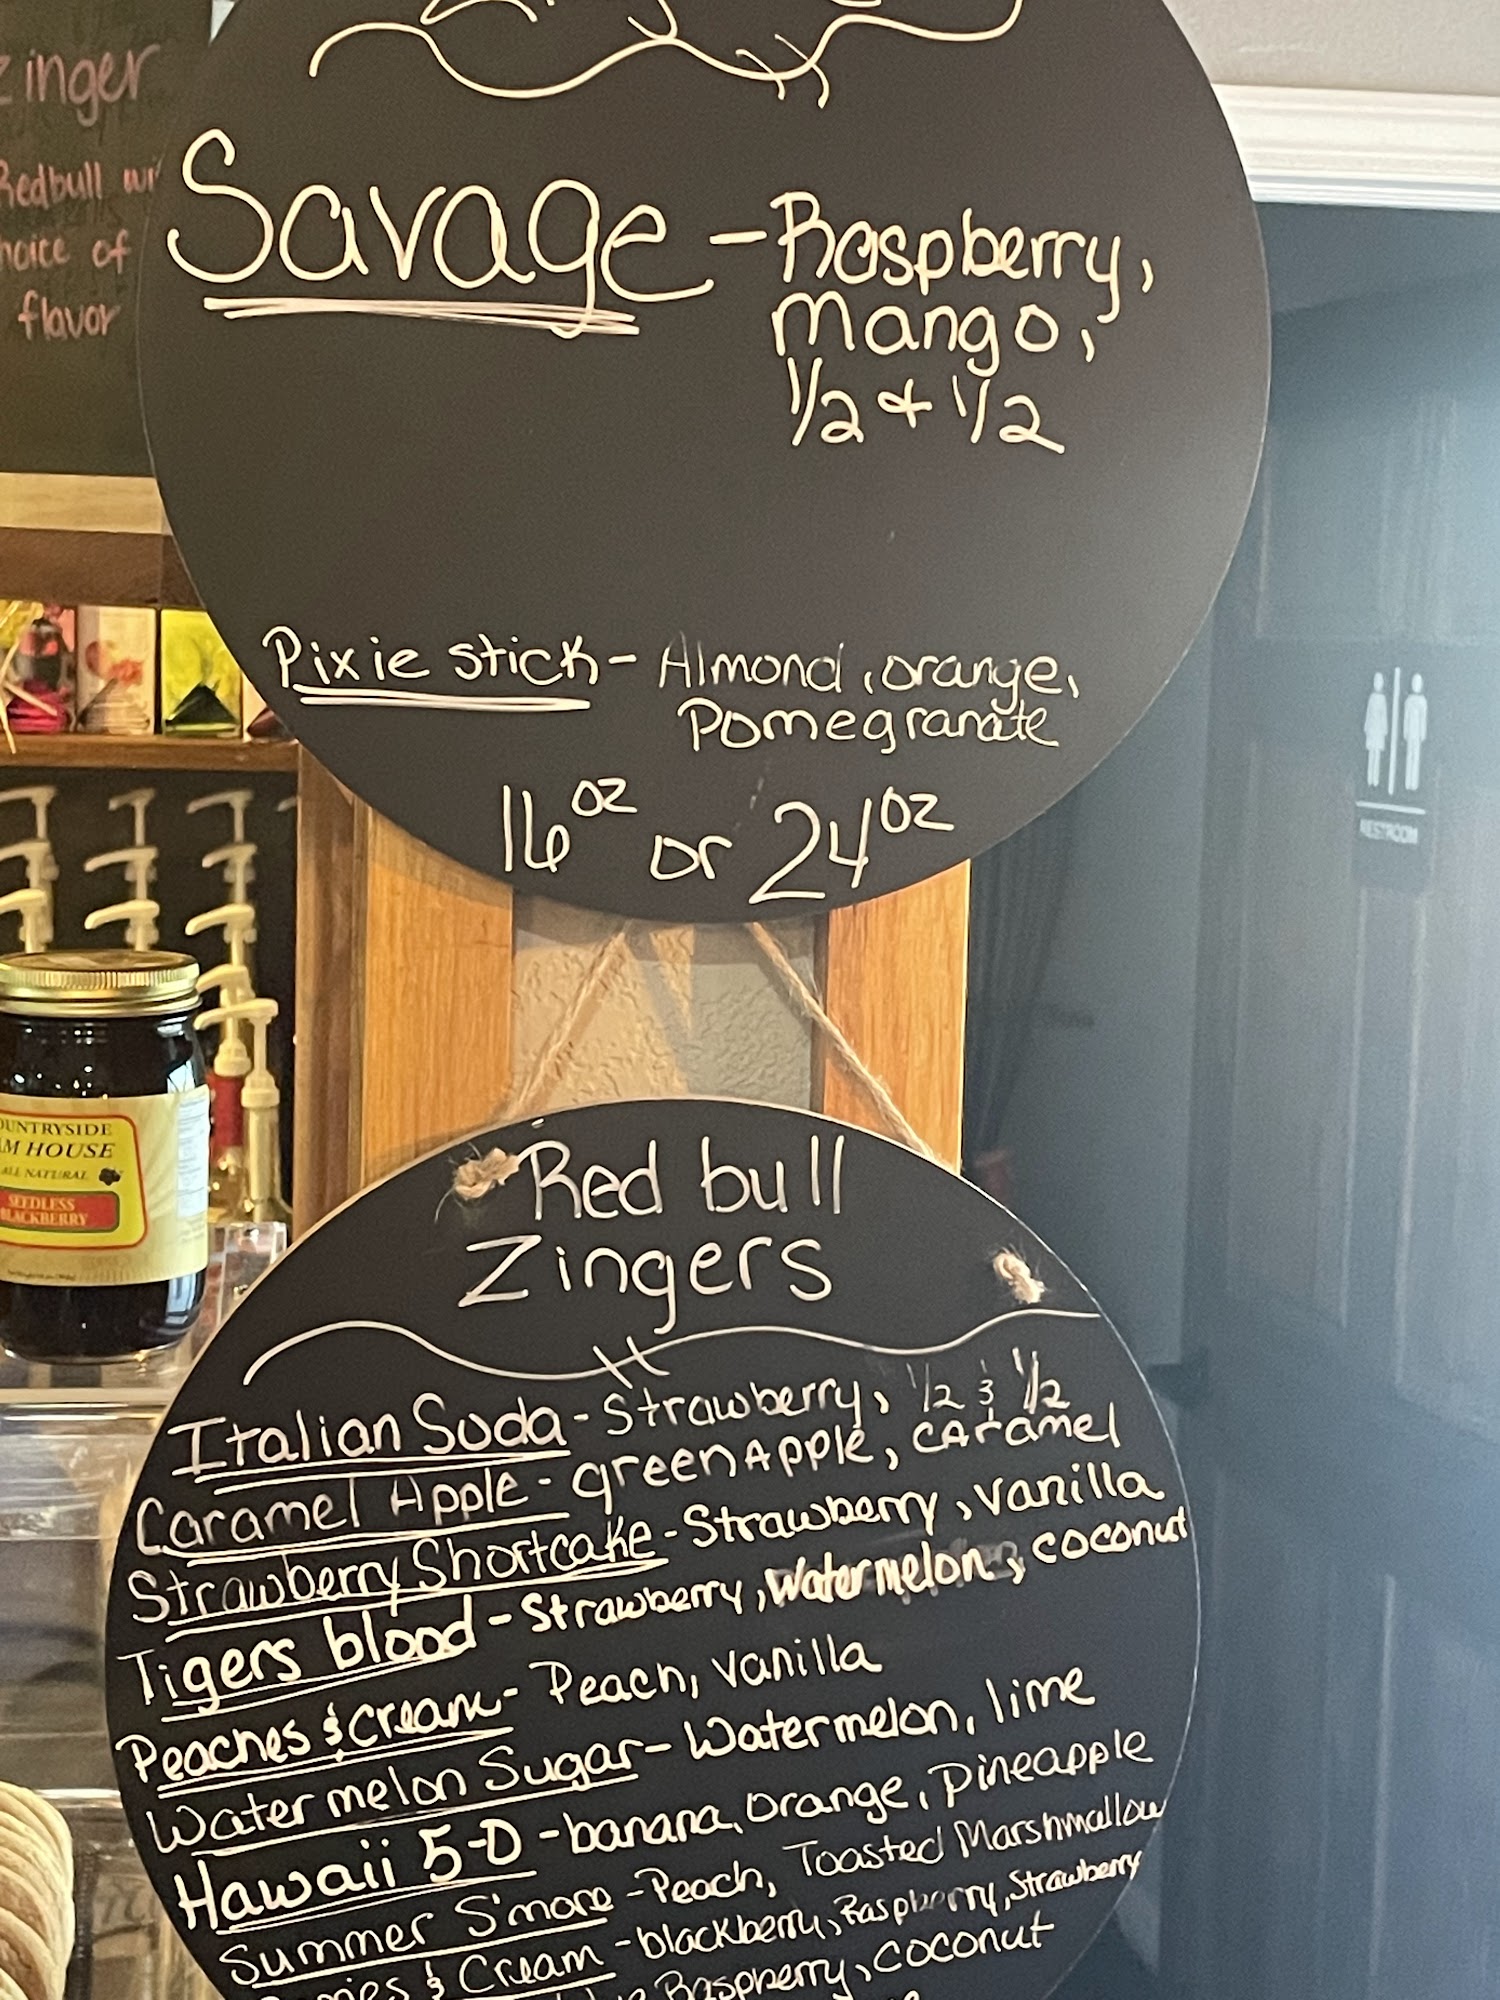 inger
Redbull
of
flavor
Savage - Raspberry,
Mango,
1/2 & 1/2
Pixie stick - Almond, orange,
Pomegranate
16 oz or 24 oz
RESTROOM
HOUSE
ALL NATURAL
SEEDLESS
BLACKBERRY
Red bull
Zingers
Italian Soda - Strawberry, 1/2 & 1/2
Caramel Apple - green Apple, caramel
Strawberry Shortcake - Strawberry, vanilla
Tigers blood - Strawberry, Watermelon, coconut
Peaches & Cream - Peach, vanilla
Watermelon Sugar - Watermelon, lime
Hawaii 5-0 - banana, orange, pineapple
Summer S'more - Peach, Toasted Marshmallow
& Cream - blackberry, Raspberry, Strawberry
Raspberry, coconut